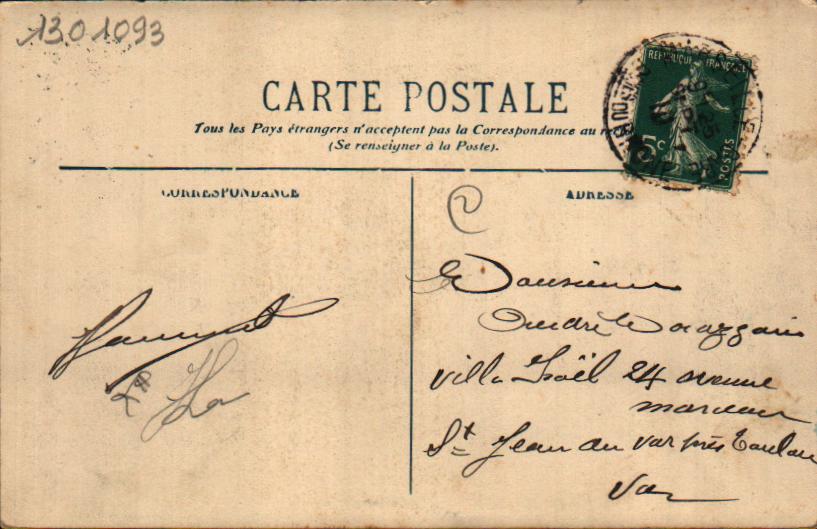 13.01093
REPUBLIQUE FRANÇAISE
5c
POSTES
CARTE POSTALE
Tous les Pays étrangers n'acceptent pas la Correspondance au
(Se renseigner à la Poste).
CORRESPONDANCE
ADRESSE
Monsieur
André
villa Joël 24 avenue
marceau
St Jean du var près Toulon
Var